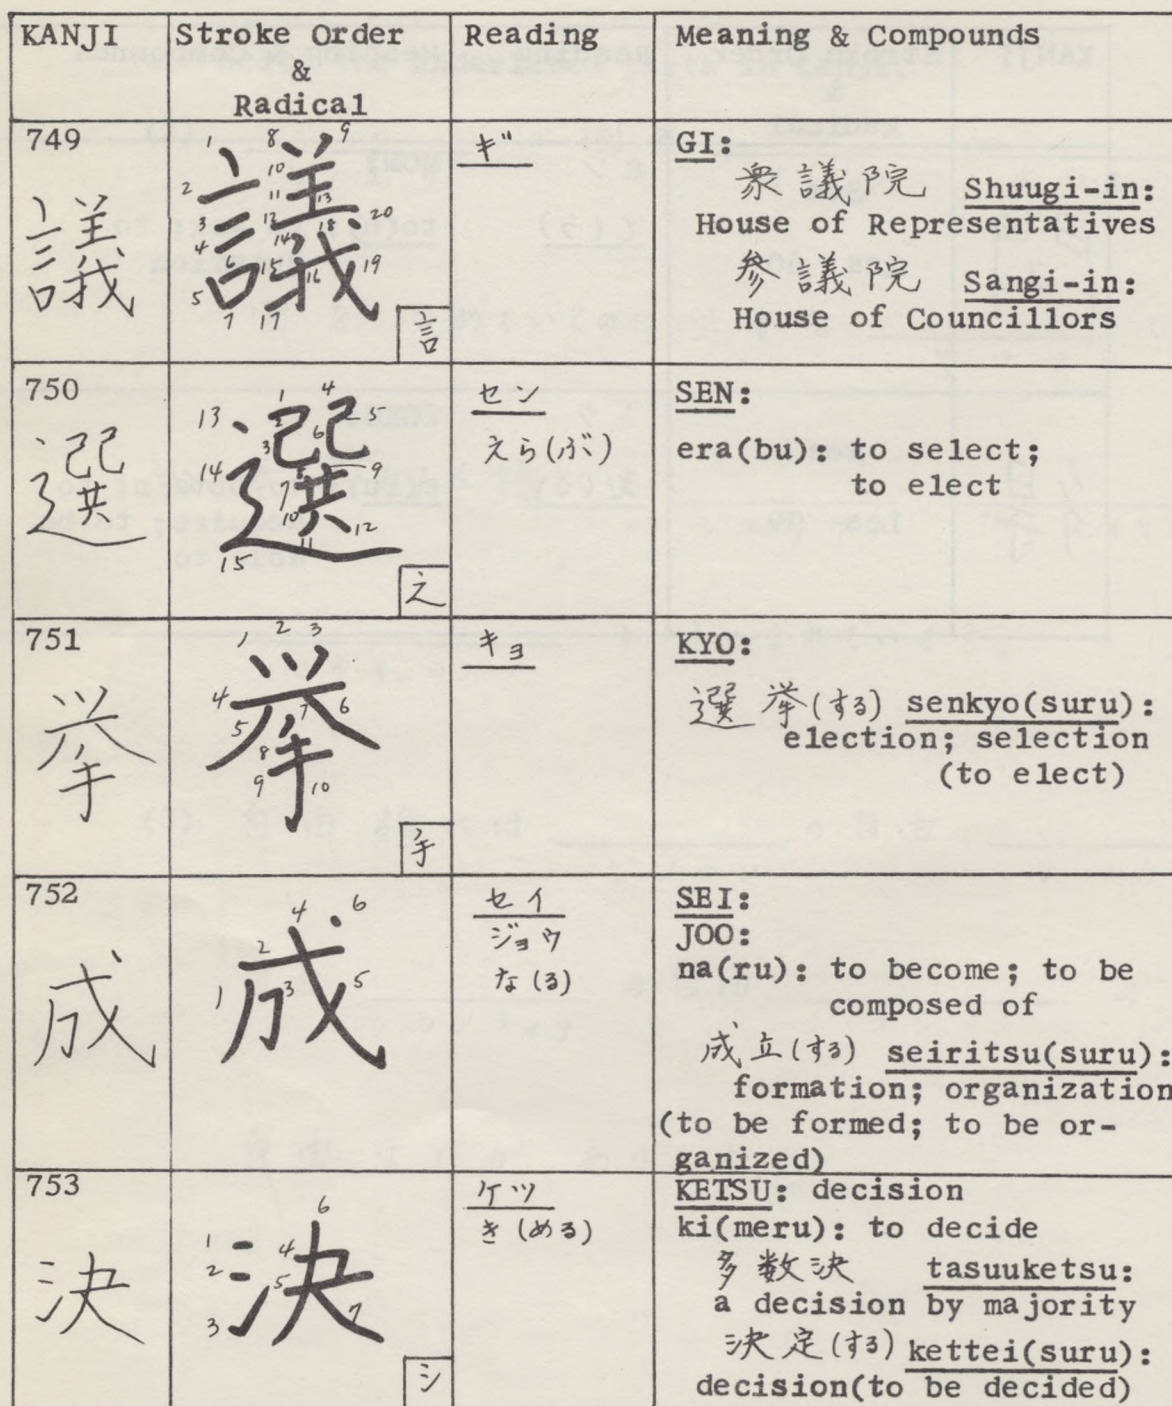 KANJI Stroke Order Reading Meaning & Compounds
&
Radical
749
議
1 2 3 4 5 6 7 8 9 10 11 12 13 14 15 16 17 18 19 20
議
言
ギ
GI:
衆議院 Shuugi-in:
House of Representatives
参議院 Sangi-in:
House of Councillors
750
選
1 2 3 4 5 6 7 8 9 10 11 12 13 14 15
選
セン
えら(ぶ)
SEN:
era(bu): to select;
to elect
751
挙
1 2 3 4 5 6 7 8 9 10
挙
手
キョ
KYO:
選挙(する) senkyo(suru):
election; selection
(to elect)
752
成
1 2 3 4 5 6
成
セイ
ジョウ
な(る)
SEI:
JOO:
na(ru): to become; to be
composed of
成立(する) seiritsu(suru):
formation; organization
(to be formed; to be or-
ganized)
753
決
1 2 3 4 5 6 7
決
氵
ケツ
き(める)
KETSU: decision
ki(meru): to decide
多数決 tasuuketsu:
a decision by majority
決定(する) kettei(suru):
decision(to be decided)